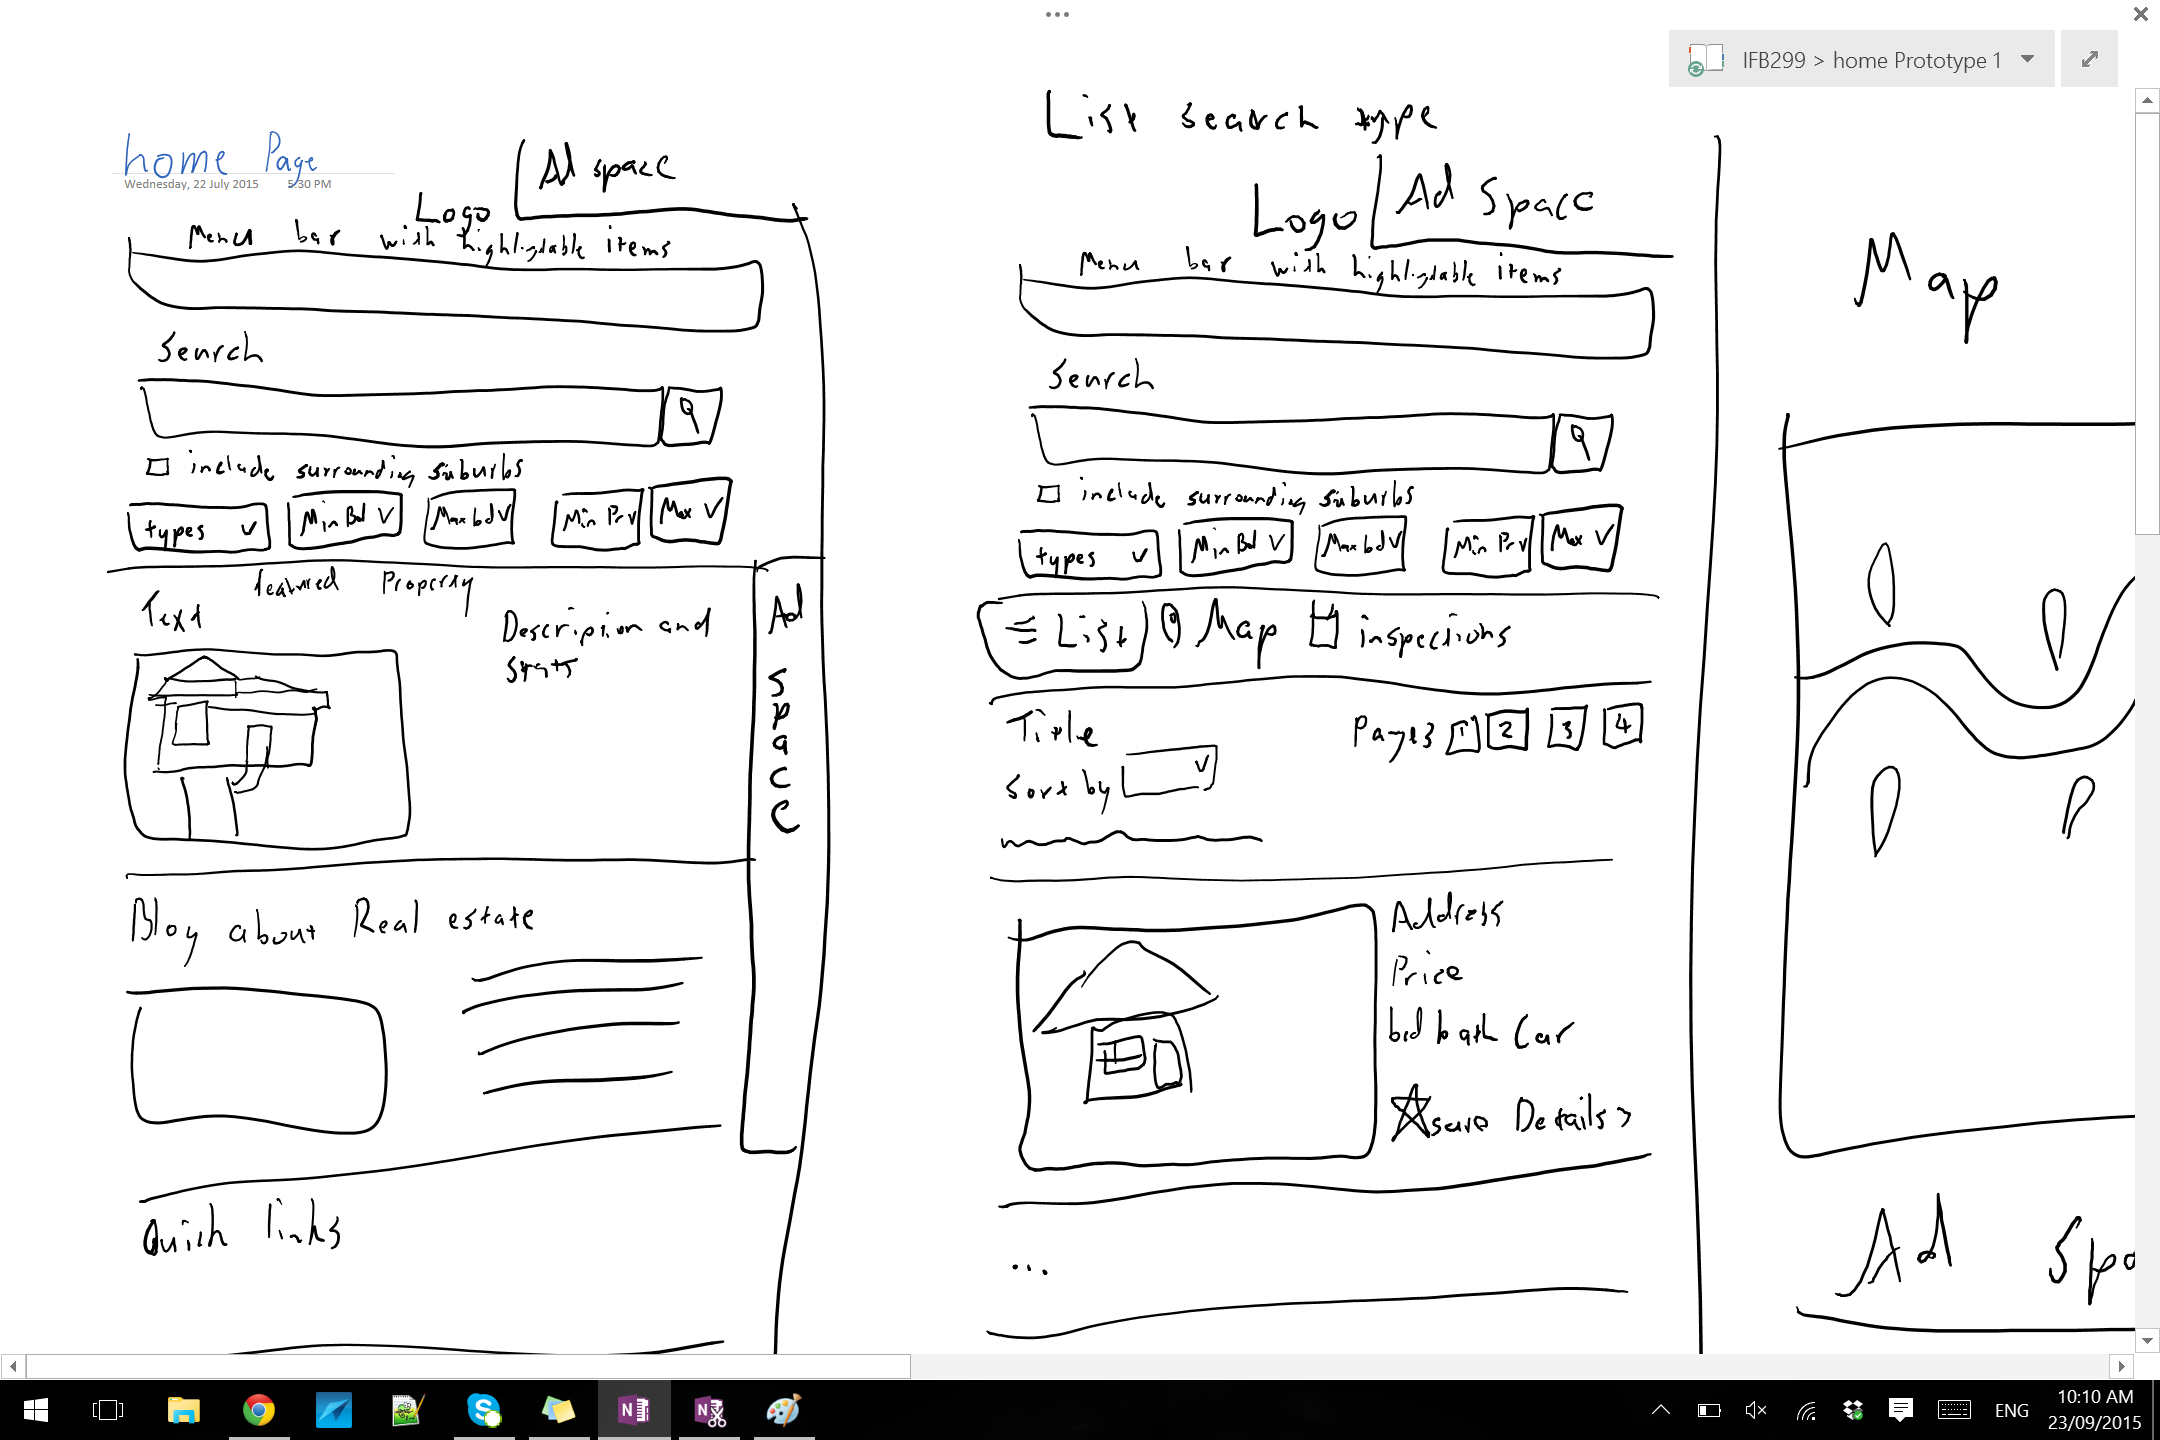 IFB299 > home Prototype 1
home Page
Wednesday, 22 July 2015 5:30 PM
Ad space
Logo
Menu bar with highligtable items
Search
include surrounding suburbs
types V Min Bd V Max bd V Min Pr V Max V
featured Property
Text
Description and
stats
Ad space
Blog about Real estate
Quick links
List search type
Logo
Ad Space
Menu bar with highligtable items
Search
include surrounding suburbs
types V Min Bd V Max bd V Min Pr V Max V
List Map inspections
Title
Pages 1 2 3 4
sort by V
Address
Price
bed bath Car
save Details >
...
Map
Ad Spa
10:10 AM
ENG
23/09/2015